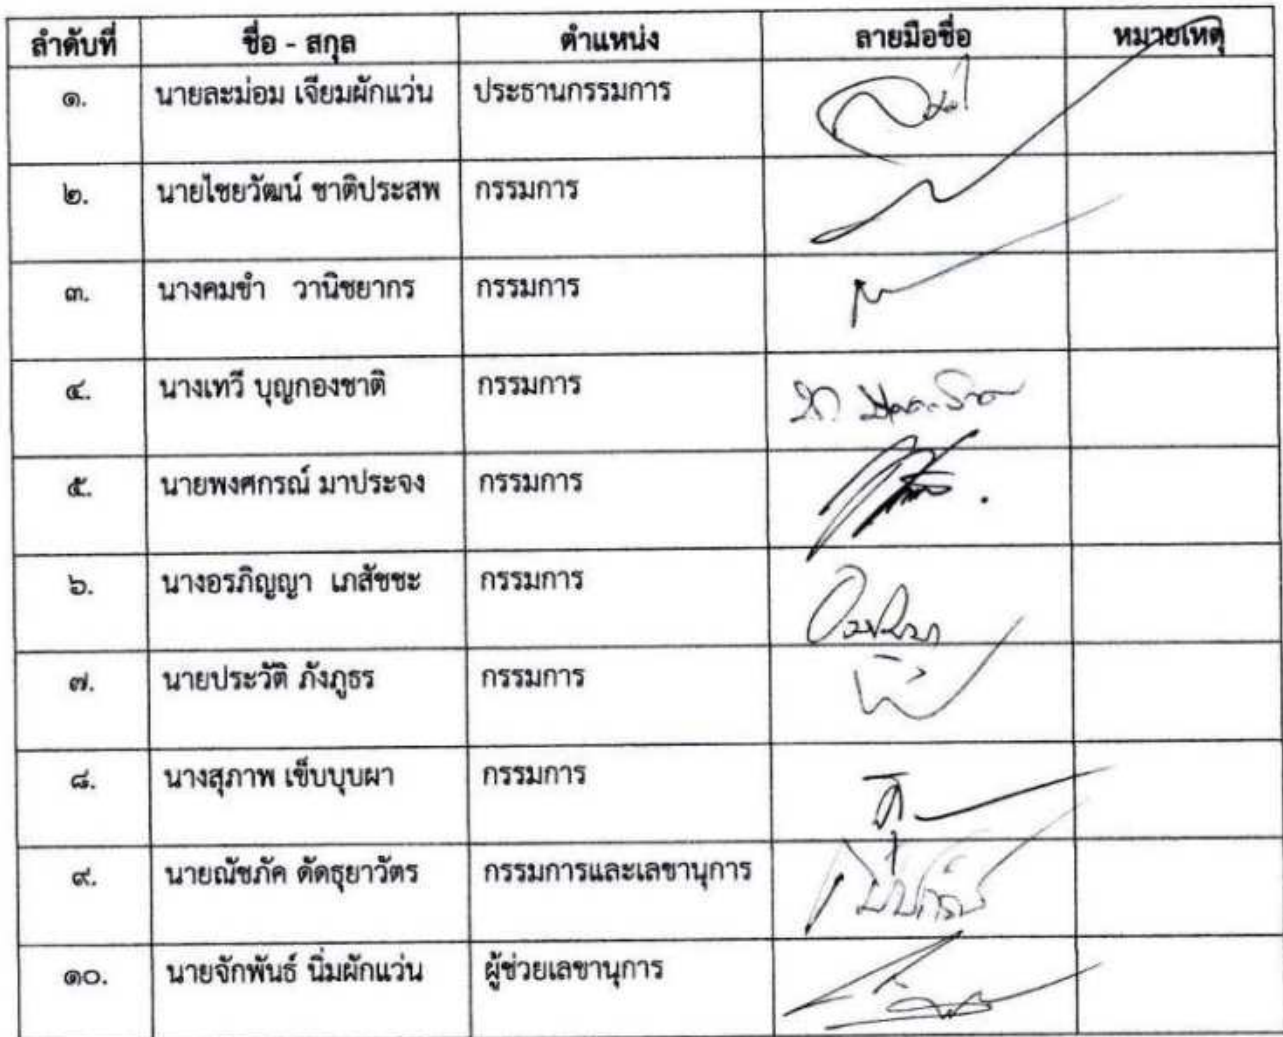 ลำดับที่ ชื่อ - สกุล ตำแหน่ง ลายมือชื่อ หมายเหตุ
๑. นายละม่อม เจียมผักแว่น ประธานกรรมการ
๒. นายไชยวัฒน์ ชาติประสพ กรรมการ
๓. นางคมขำ วานิชยากร กรรมการ
๔. นางเทวี บุญกองชาติ กรรมการ
๕. นายพงศกรณ์ มาประจง กรรมการ
๖. นางอรภิญญา เภสัชชะ กรรมการ
๗. นายประวัติ ภังภูธร กรรมการ
๘. นางสุภาพ เข็บบุบผา กรรมการ
๙. นายณัชภัค ดัดธุยาวัตร กรรมการและเลขานุการ
๑๐. นายจักพันธ์ นิ่มผักแว่น ผู้ช่วยเลขานุการ